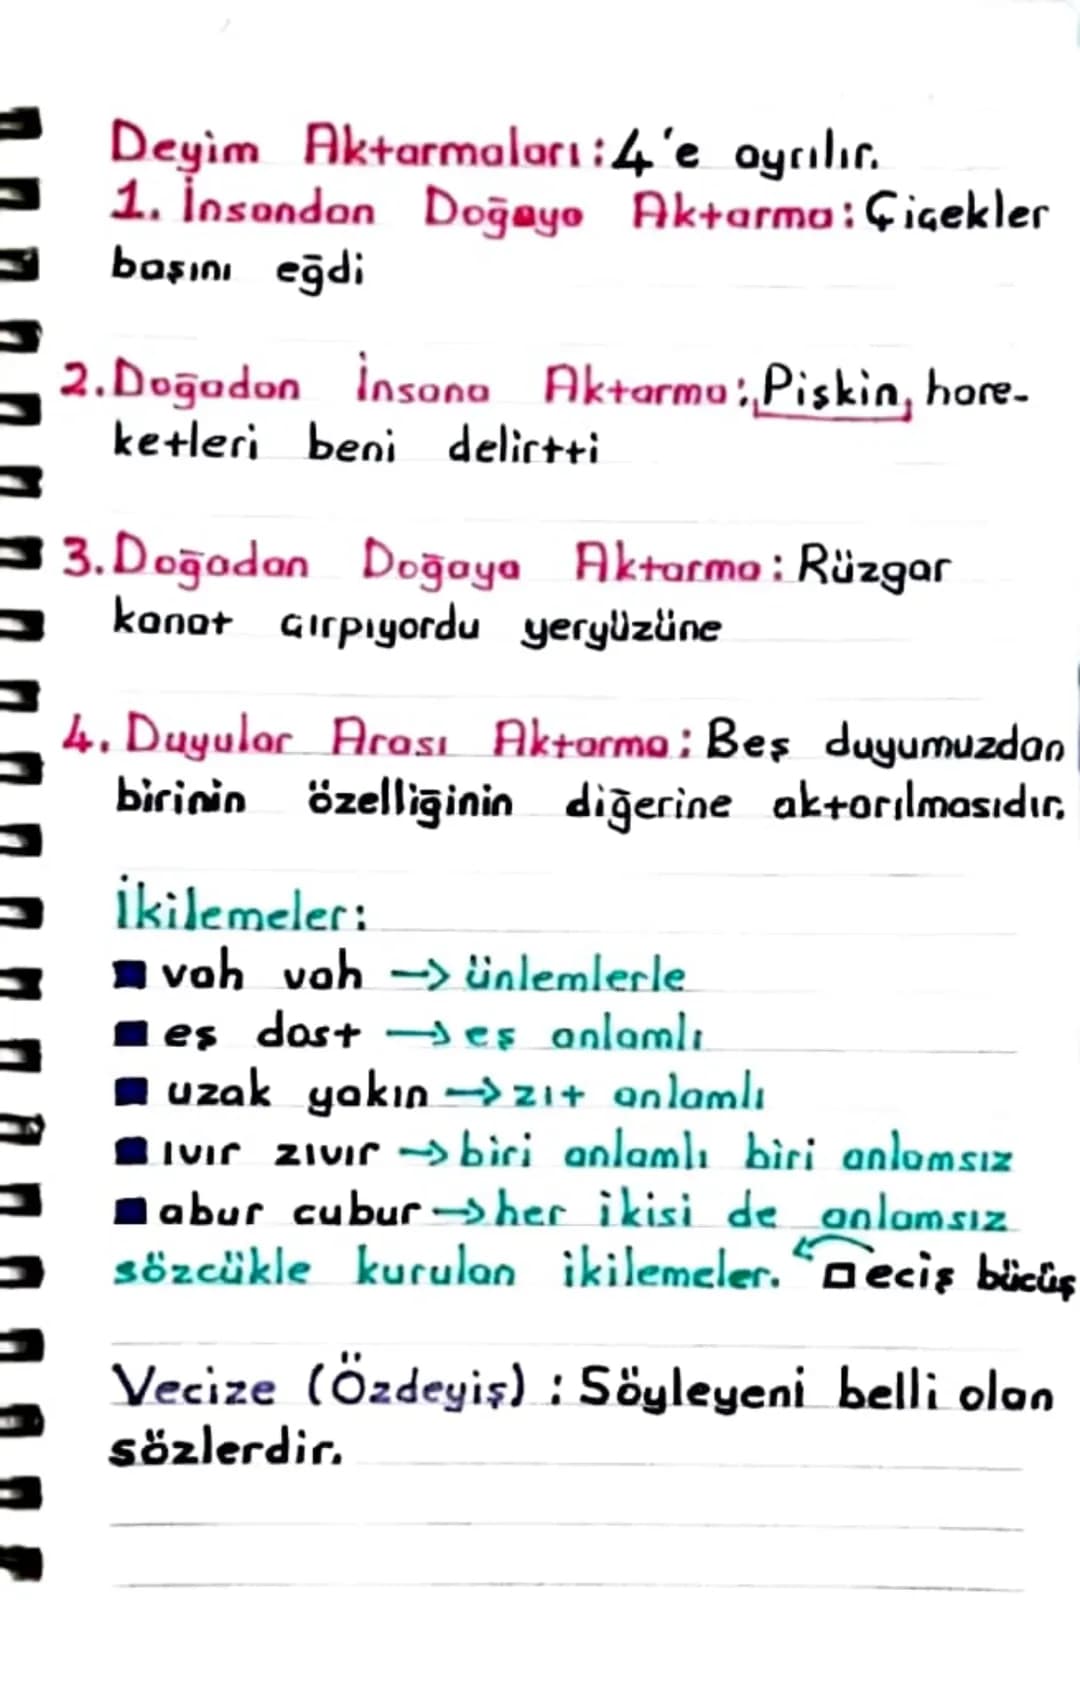 Deyim Aktarmaları: 4'e ayrılır.
1. İnsandan Doğaya Aktarma: Çiçekler
başını eğdi
2. Doğadan İnsana Aktarma: Pişkin, hare-
ketleri beni delirtti
3. Doğadan Doğaya Aktarma: Rüzgar
kanat çırpıyordu yeryüzüne
4. Duyular Arası Aktarma: Beş duyumuzdan
birinin özelliğinin diğerine aktarılmasıdır.
İkilemeler:
■ vah vah → ünlemlerle
■ eş dost → eş anlamlı
■ uzak yakın → zıt anlamlı
■ ıvır zıvır → biri anlamlı biri anlamsız
■ abur cubur → her ikisi de anlamsız
sözcükle kurulan ikilemeler. □ eciş bücüş
Vecize (Özdeyiş) : Söyleyeni belli olan
sözlerdir.